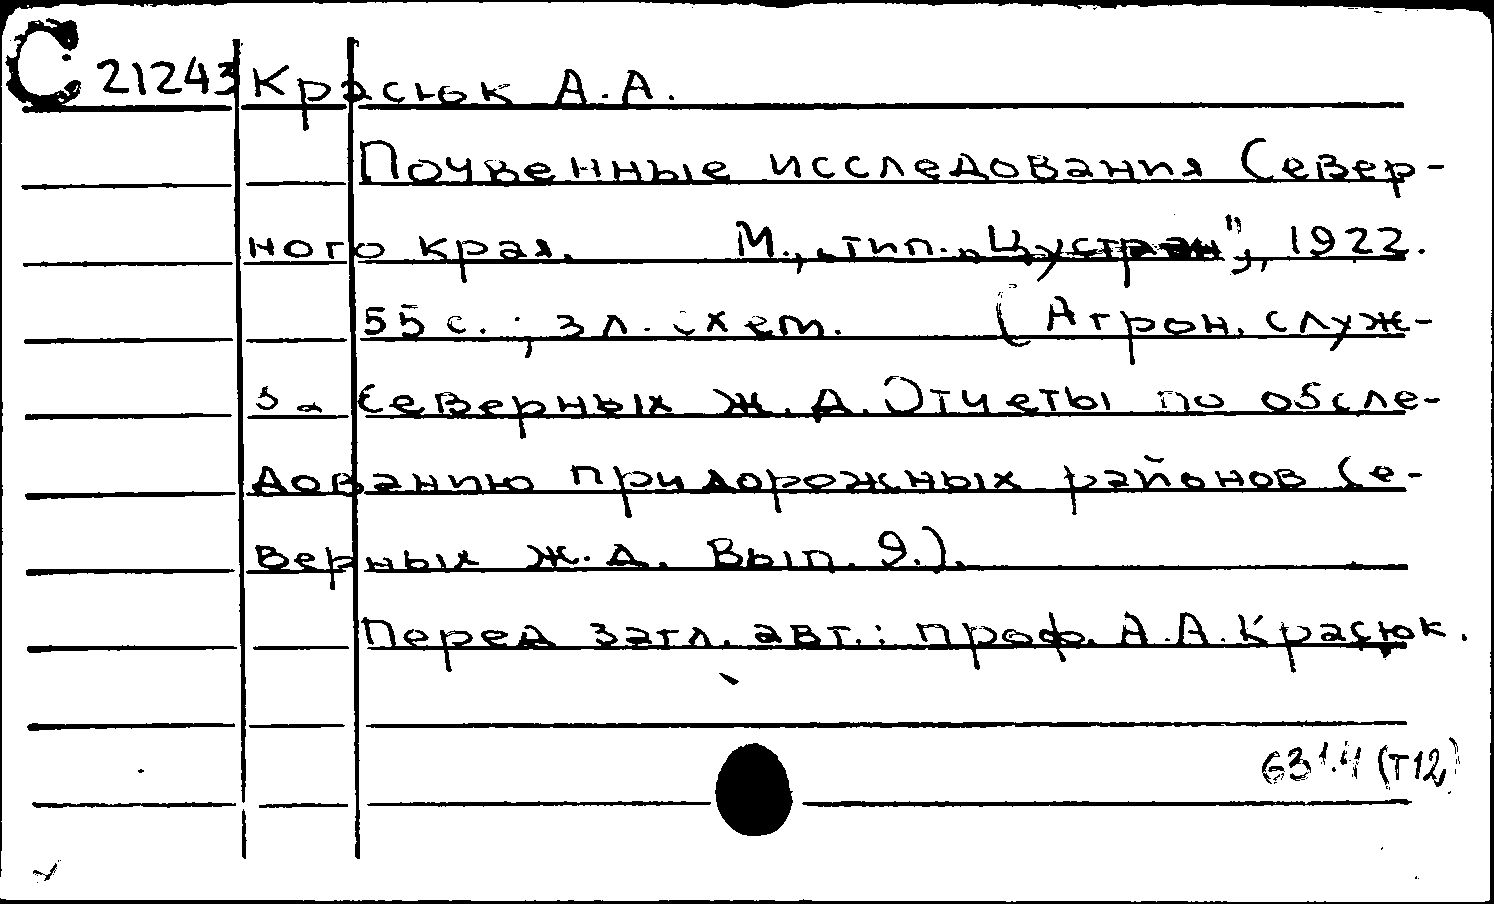 С 21243 Красюк А.А.
Почвенные исследования Север-
ного края. М., тип. „Цустран", 1922.
55 с. ; 3 л. схем. (Агрон. служ-
ба Северных ж.д. Отчеты по обсле-
дованию придорожных районов Се-
верных ж.д. Вып. 9.).
Перед загл. авт.: проф. А.А. Красюк.
631.4 (Т12)